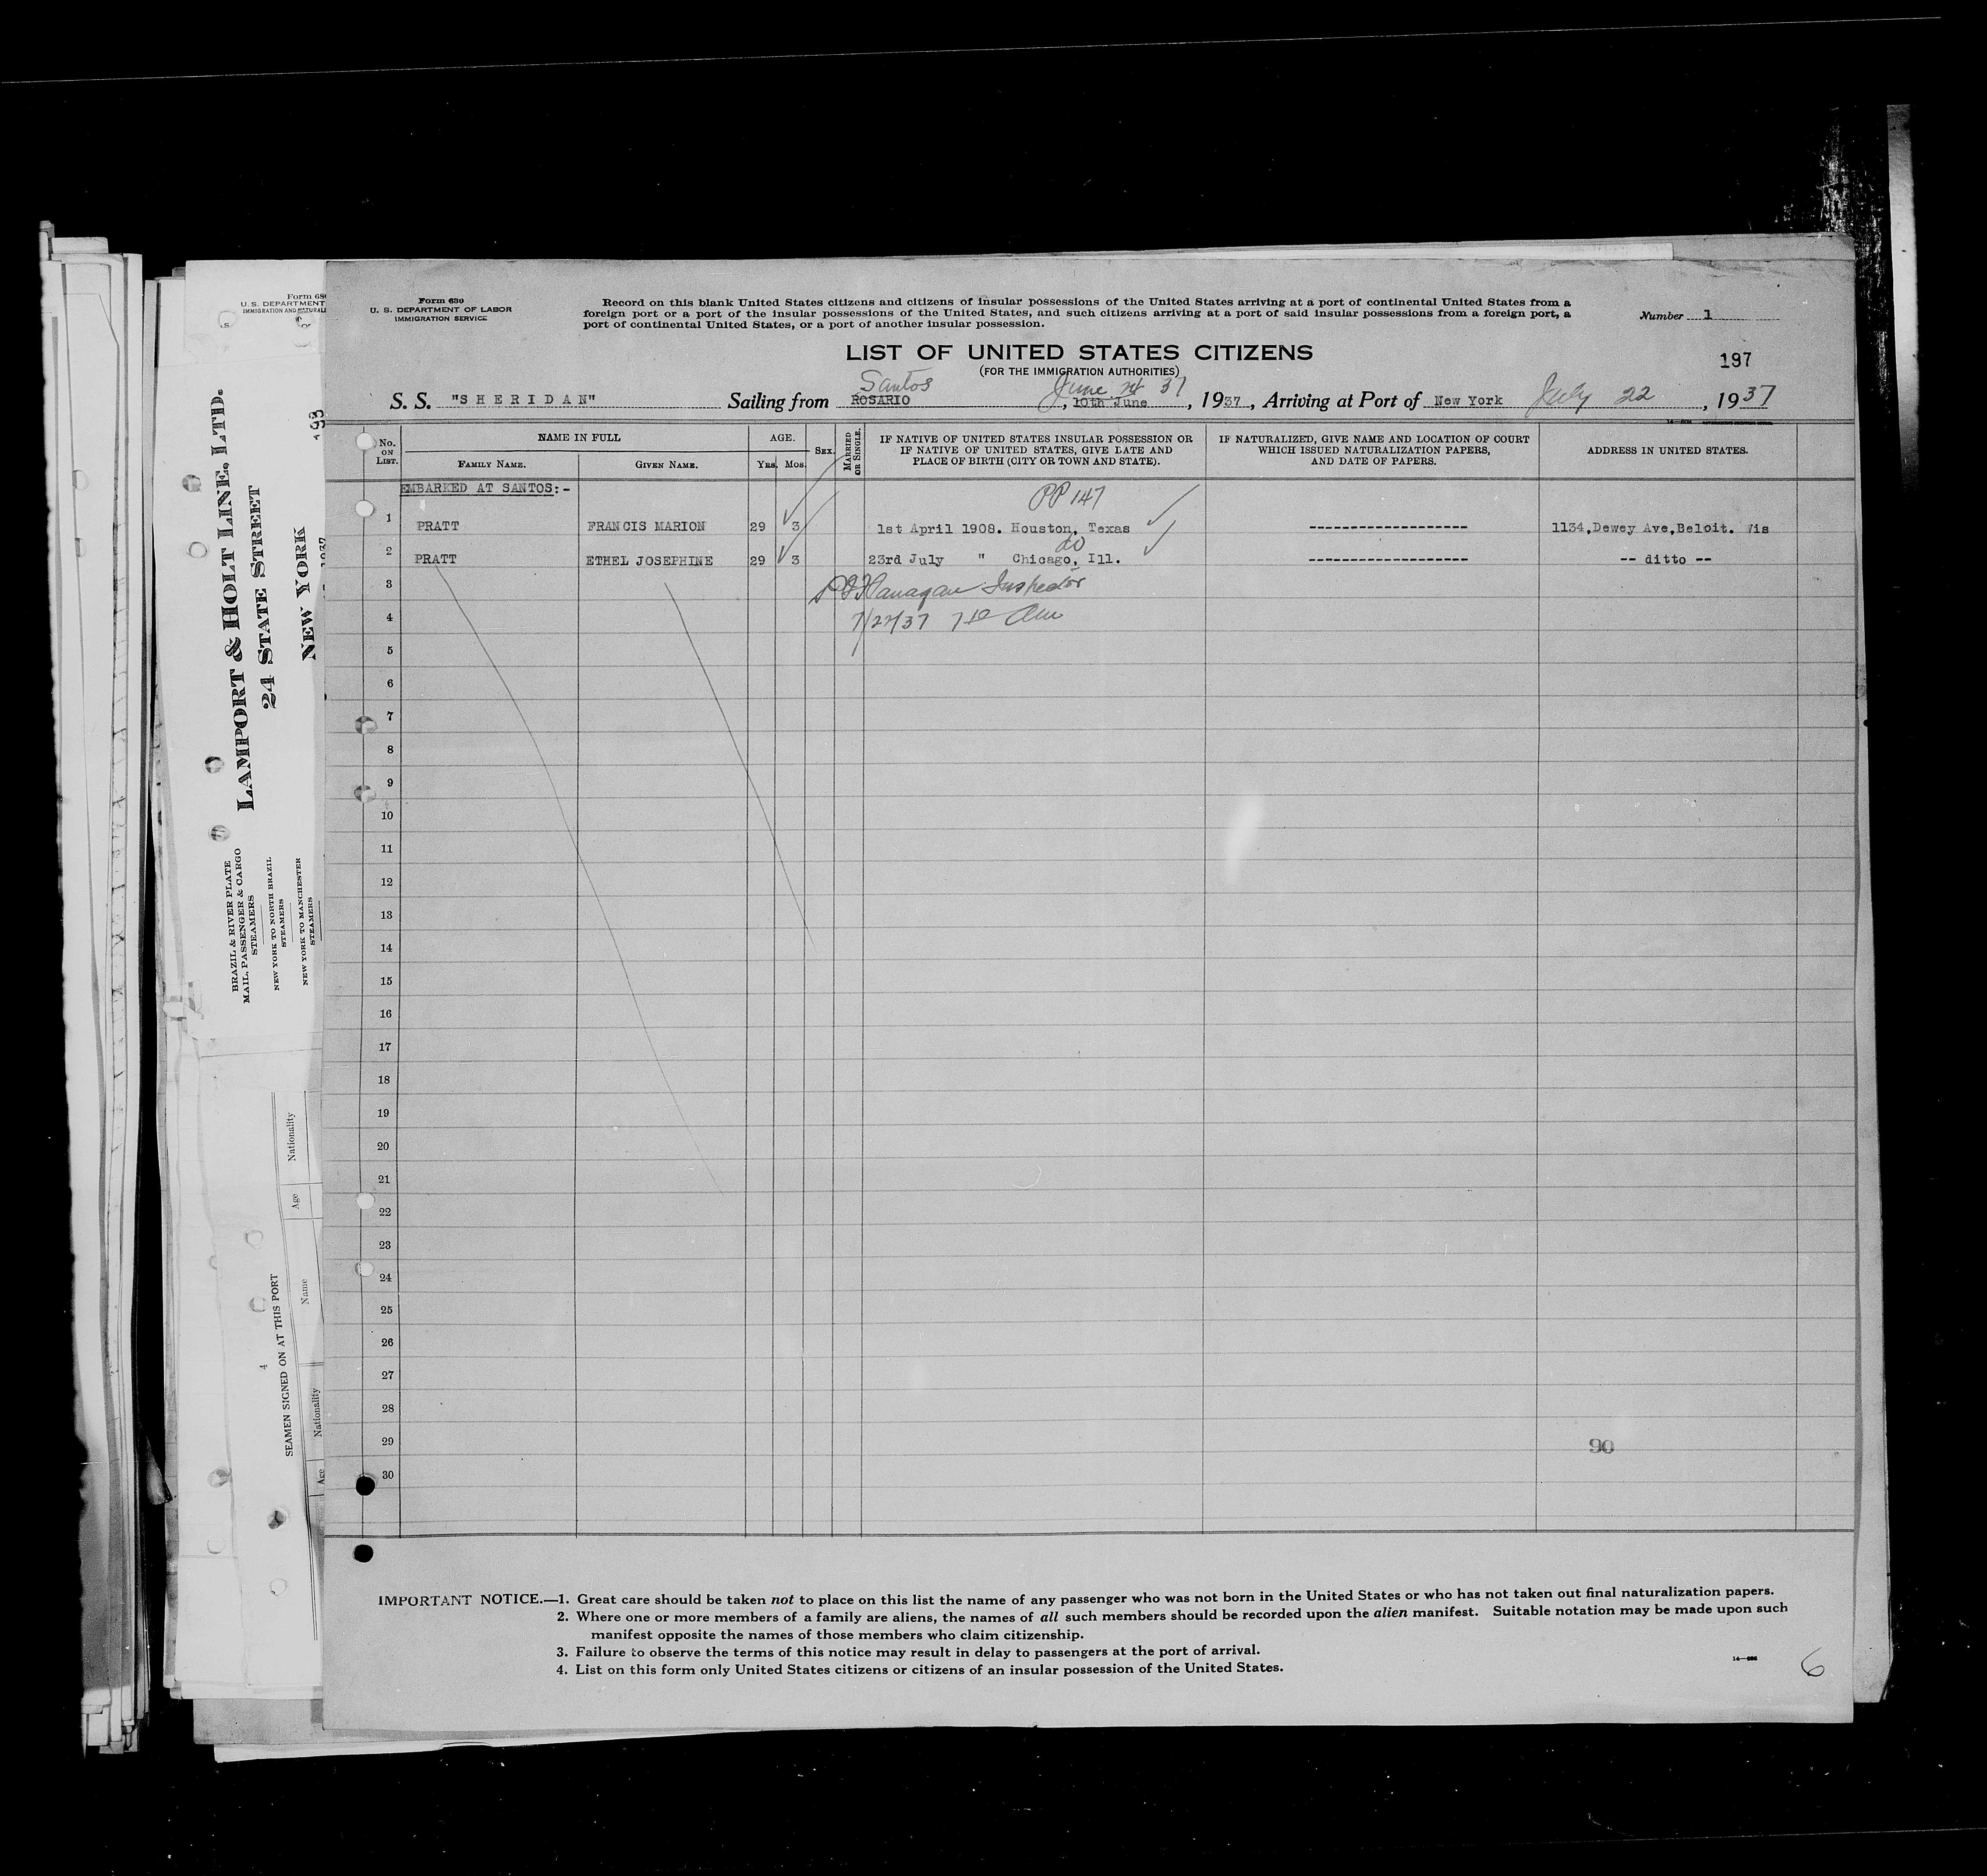 Form 630
U. S. DEPARTMENT OF LABOR
IMMIGRATION SERVICE
Record on this blank United States citizens and citizens of insular possessions of the United States arriving at a port of continental United States from a
foreign port or a port of the insular possessions of the United States, and such citizens arriving at a port of said insular possessions from a foreign port, a
port of continental United States, or a port of another insular possession.
Number 1
LIST OF UNITED STATES CITIZENS
(FOR THE IMMIGRATION AUTHORITIES)
197
Santos June 37
S. S. "SHERIDAN" Sailing from ROSARIO, 10th June, 1937, Arriving at Port of New York July 22, 1937
No. ON LIST.
NAME IN FULL
FAMILY NAME. GIVEN NAME.
AGE.
Yrs. Mos.
SEX.
MARRIED OR SINGLE.
IF NATIVE OF UNITED STATES INSULAR POSSESSION OR
IF NATIVE OF UNITED STATES, GIVE DATE AND
PLACE OF BIRTH (CITY OR TOWN AND STATE).
IF NATURALIZED, GIVE NAME AND LOCATION OF COURT
WHICH ISSUED NATURALIZATION PAPERS,
AND DATE OF PAPERS.
ADDRESS IN UNITED STATES.
EMBARKED AT SANTOS:-
PP 147
1 PRATT FRANCIS MARION 29 3 1st April 1908. Houston, Texas ------------------- 1134,Dewey Ave,Beloit. Wis
do
2 PRATT ETHEL JOSEPHINE 29 3 23rd July " Chicago, Ill. ------------------- -- ditto --
3 Flanagan Inspector
4 7/22/37 7 10 Am
5
6
7
8
9
10
11
12
13
14
15
16
17
18
19
20
21
22
23
24
25
26
27
28
29
30
90
IMPORTANT NOTICE.—1. Great care should be taken not to place on this list the name of any passenger who was not born in the United States or who has not taken out final naturalization papers.
2. Where one or more members of a family are aliens, the names of all such members should be recorded upon the alien manifest. Suitable notation may be made upon such
manifest opposite the names of those members who claim citizenship.
3. Failure to observe the terms of this notice may result in delay to passengers at the port of arrival.
4. List on this form only United States citizens or citizens of an insular possession of the United States.
6
U. S. DEPARTMENT
198
LAMPORT & HOLT LINE, LTD.
24 STATE STREET
NEW YORK
BRAZIL & RIVER PLATE
MAIL, PASSENGER & CARGO
STEAMERS
NEW YORK TO NORTH BRAZIL
STEAMERS
NEW YORK TO MANCHESTER
STEAMERS
Nationality
Age
Name
4
SEAMEN SIGNED ON AT THIS PORT
Nationality
Age